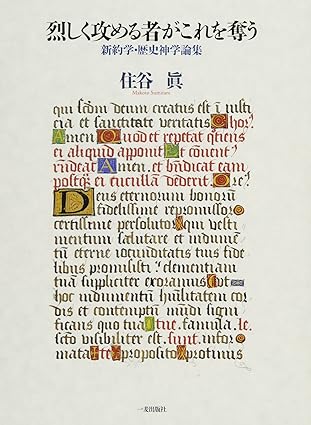 烈しく攻める者がこれを奪う
新約学・歴史神学論集
住谷 眞
Makoto Sumitani
qui scdm deum creatus est ī iusti
cia et sanctitate veritatis Chor?
Amen Quod et repetat qciens
ei aliquid apponit Et cōuent?
rūdeat Amen. et bñdicat eam
postq̃ ei cuculla dederit. Ore?
Deus eternorum bonorū
fidelissime repromissor
certissime persolutor qui vesti
mentum salutare et indumē
tū eterne iocunditatis tuis fide
libus promisisti clementiam
tuā suppliciter exoramus vt
hoc indumentū hūilitatem cor
dis et contemptū mūdi signi
ficans quo tua tue. famula. le.
scto visibiliter est. sunt. infor
mata te proposito protinus
一麦出版社